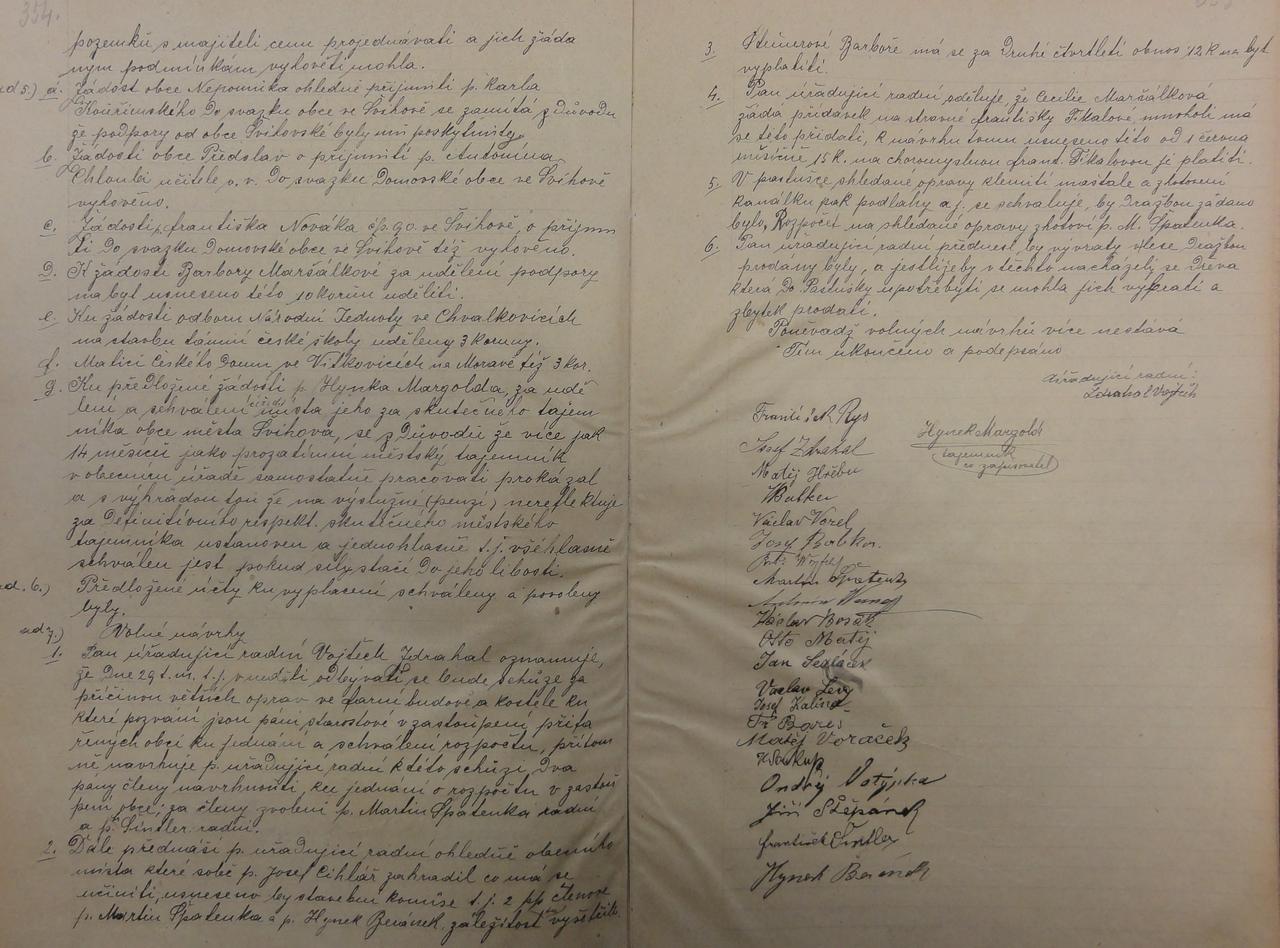 354.
pozemků s majiteli cenu projednávati a jich žáda
ným podmínkám vyhověti mohla.
ad 5.) a. Žádost obce Nepomuka ohledně přijmutí p. Karla
Kouřimského do svazku obce ve Švihově se zamítá z důvodu
že podpory od obce Švihovské byly mu poskytnuty.
b. Žádosti obce Předslav o přijmutí p. Antonína
Chlouba učitele v. v. do svazku Domovské obce ve Švihově
vyhověno.
c. Žádosti Františka Nováka čp. 90. ve Švihově, o přijmu
tí do svazku Domovské obce ve Švihově též vyhověno.
d. K žádosti Barbory Maršálkové za udělení podpory
na byt usneseno této 10 korun uděliti.
e. Ku žádosti odboru Národní Jednoty ve Chvalkovicích
na stavbu tamní české školy uděleny 3 koruny.
f. Matici Českého Domu ve Vítkovicích na Moravě též 3 kor.
g. Ku předložené žádosti p. Hynka Margolda, za udě
lení a schválení místa jeho za skutečného tajem
níka obce města Švihova, se z důvodu že více jak
14 měsíců jako prozatímní městský tajemník
v obecním úřadě samostatně pracovati prokázal
a s vyhradou tou že na výslužné (penzi) nereflektuje
za definitivního respekt. skutečného městského
tajemníka ustanoven a jednohlasně t. j. všehlasně
schválen jest pokud síly stačí do jeho libosti.
ad. 6.) Předložené účty ku vyplacení schváleny a povoleny
byly.
ad 7.) Volné návrhy
1. Pan úřadující radní Vojtěch Zdrahal oznamuje,
že dne 29 t. m. t. j. v neděli odbývati se bude schůze za
příčinou větších oprav ve farní budově a kostele ku
které pozváni jsou páni starostové v zastoupení přifa
řených obcí ku jednání a schválení rozpočtu, přitom
ně navrhuje p. úřadující radní k této schůzi dva
pány členy navrhnouti, ku jednání o rozpočtu v zastou
pení obce; za členy zvoleni p. Martin Špatenka radní
a p. Šintler radní.
2. Dále přednáší p. úřadující radní ohledně obecního
místa které sobě p. Josef Cihlář zahradil co má se
učiniti, usneseno by stavební komise t. j. 2 pp členové
p. Martin Špatenka a p. Hynek Beránek záležitost vyšetřili.
3. Steinerové Barboře má se za druhé čtvrtletí obnos 12 K na byt
vyplatiti.
4. Pan úřadující radní sděluje, že Cecilie Maršálková
žádá přídavek na stravné Františky Fikalové, mnoholi má
se této přidati, k návrhu tomu usneseno této od 1 června
měsíčně 15 K. na choromyslnou Frant. Fikalovou jí platiti.
5. V pastušce shledané opravy klenutí maštale a zhotovení
kanálku pak podlahy a j. se schvaluje, by dražbou zadáno
bylo, Rozpočet na shledané opravy zhotoví p. M. Špatenka.
6. Pan úřadující radní přednesl by vývraty v lese dražbou
prodány byly, a jestliže by v těchto nacházely se dřeva
která do Pastušky upotřebyti se mohla jich vybrati a
zbytek prodati.
Poněvadž volných návrhů více nestává
Tím ukončeno a podepsáno
úřadující radní:
Zdrahal Vojtěch
František Rys
Josef Zdrahal
Hynek Margold
tajemník
co zapisovatel
Matěj Hřebec
Václav Vorel
Josef Babka.
Martin Špatenka
Václav Bosák
Otto Matěj
Jan Sedláček
Václav Levý
Josef Kalina
Fr. Bareš
Matěj Voráček
Ondřej Votýpka
Jiří Štěpánek
František Šintler
Hynek Beránek